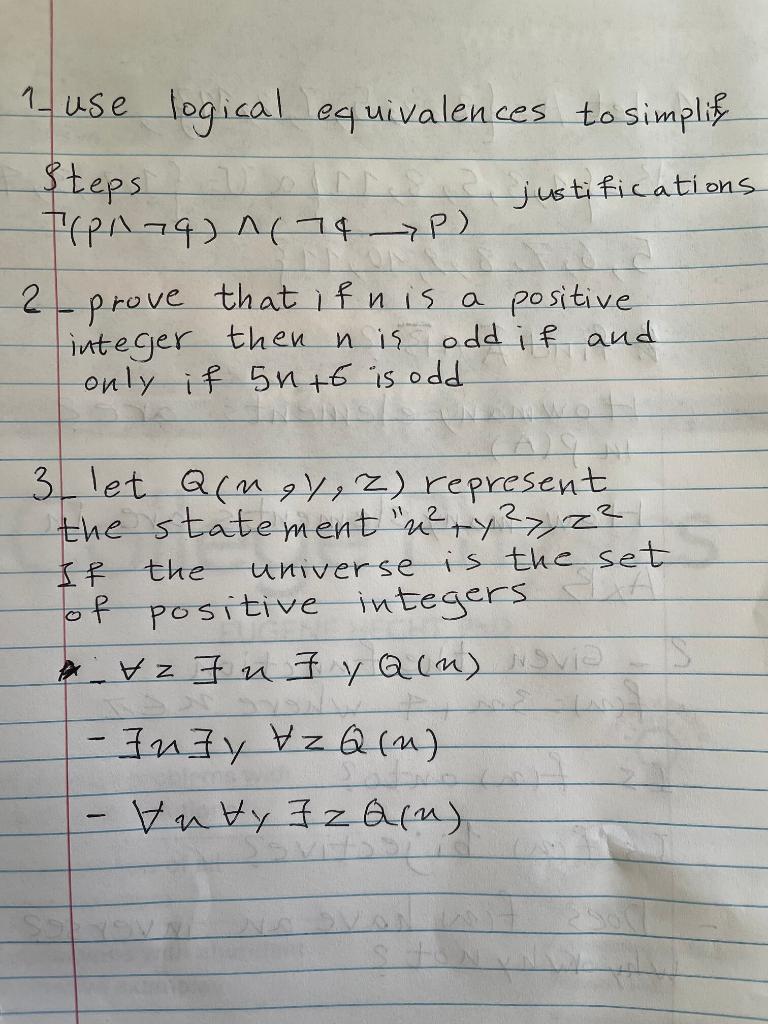 1_ use logical equivalences to simplify
Steps justifications
¬(p∧¬q) ∧(¬q → p)
2_ prove that if n is a positive
integer then n is odd if and
only if 5n+6 is odd
3_ let Q(x,y,z) represent
the statement "x²+y²≥z²
If the universe is the set
of positive integers
- ∀z ∃x ∃y Q(x)
- ∃x∃y ∀z Q(x)
- ∀x ∀y ∃z Q(x)